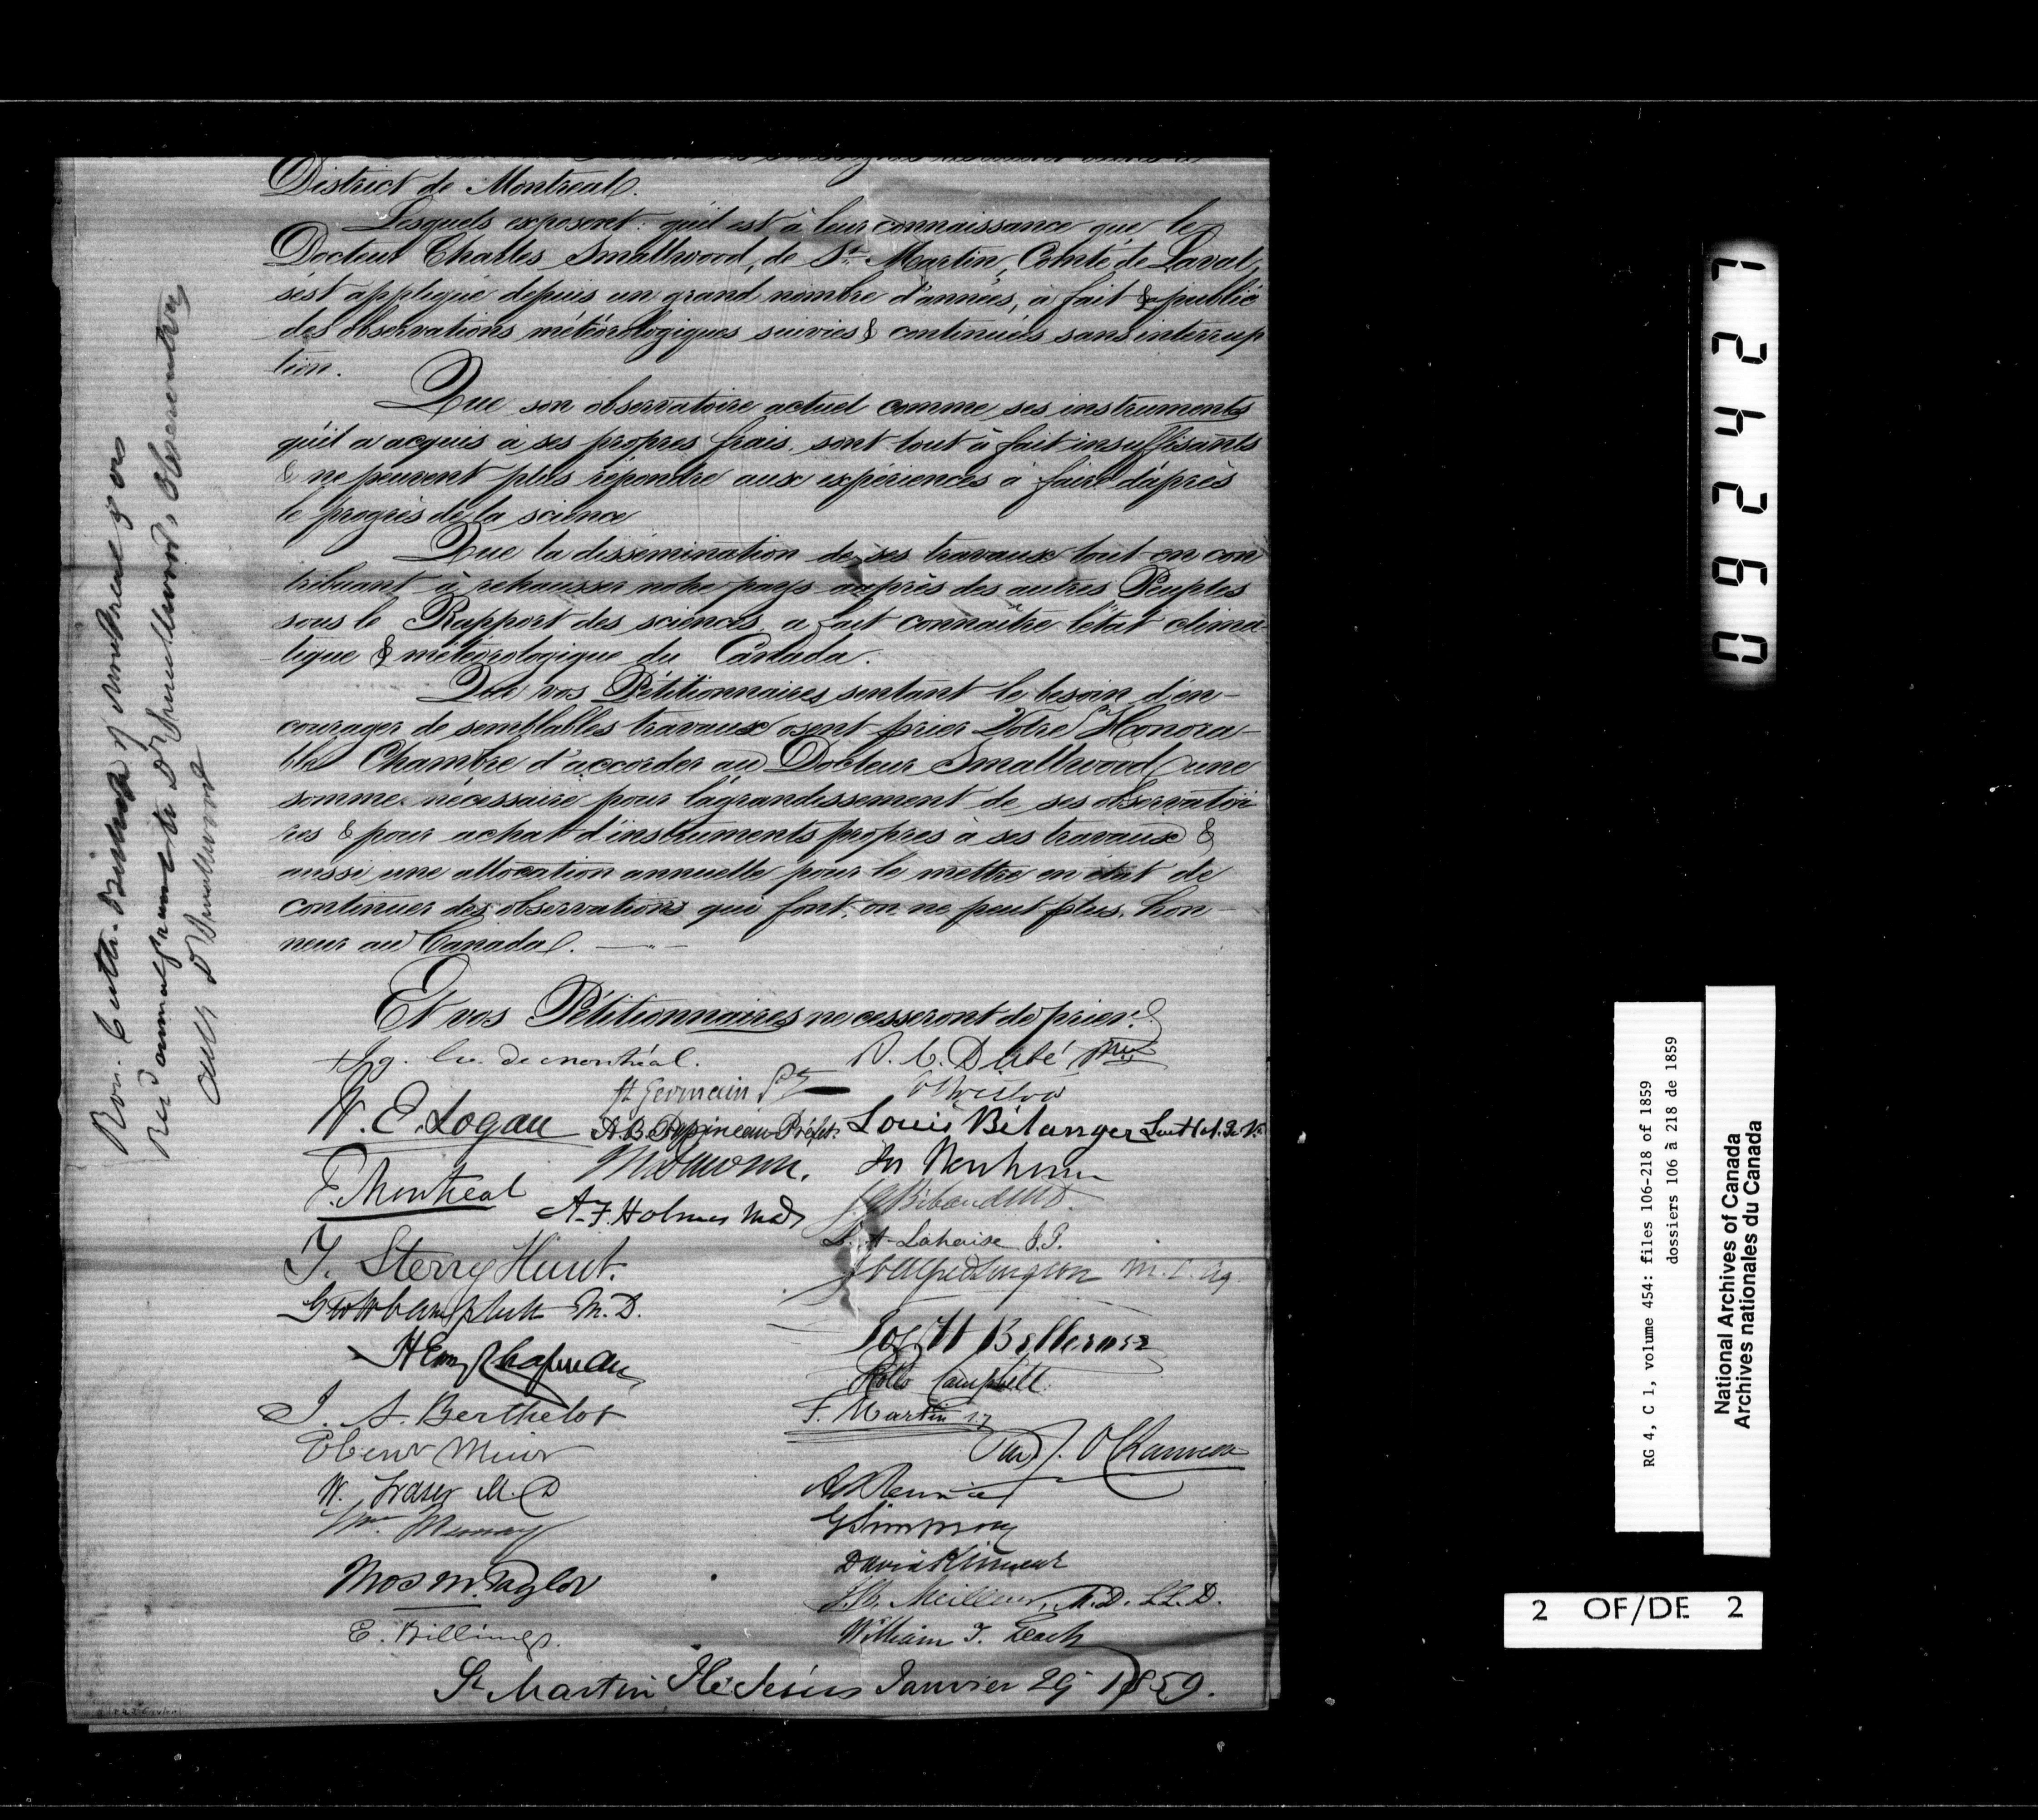 District de Montréal.
Lesquels exposent: qu'il est à leur connaissance que le
Docteur Charles Smallwood, de St. Martin, Comté de Laval,
s'est appliqué depuis un grand nombre d'années, a fait & publié
des observations météorologiques suivies & continuées sans interrup
tion.
Que son observatoire actuel comme ses instruments
qu'il a acquis à ses propres frais, sont tout à fait insuffisants
& ne peuvent plus répondre aux expériences à faire d'après
le progrès de la science
Que la dissémination de ses travaux tout en con
tribuant à rehausser notre pays auprès des autres Peuples
sous le Rapport des sciences, a fait connaître l'état clima-
tique & météorologique du Canada.
Que vos Pétitionnaires sentant le besoin d'en-
courager de semblables travaux osent prier Votre Honora-
ble Chambre d'accorder au Docteur Smallwood une
somme nécessaire pour l'agrandissement de ses observatoi
res & pour achat d'instruments propres à ses travaux &
aussi une allocation annuelle pour le mettre en état de
continuer des observations qui font, on ne peut plus, hon-
neur au Canada.
Et vos Pétitionnaires ne cesseront de prier.
+ Ig. Ev. de Montréal.
St Germain Ptre
W. E. Logan
A. B. Papineau Préfet.
F. Montreal
A. F. Holmes MD
T. Sterry Hunt.
G W Campbell M.D.
Henry Chapman
J. A. Berthelot
Ebenr Muir
W. Fraser M.D
Wm. Murray
Thos M. Taylor
E. Billings.
Louis Bélanger
L. H. Lahaise J.P.
Jos H Bellerose
Rollo Campbell
F. Martin s.j
G Simpson
David Kinnear
J. B. Meilleur, M.D. LL.D.
William T. Leach
St Martin Ile Jésus Janvier 29 1859.
Hon. Cartier
of Montreal & ors
Dr Smallwood's Observatory
Dr Smallwood
092427
RG 4, C 1, volume 454: files 106-218 of 1859
dossiers 106 à 218 de 1859
National Archives of Canada
Archives nationales du Canada
2 OF/DE 2